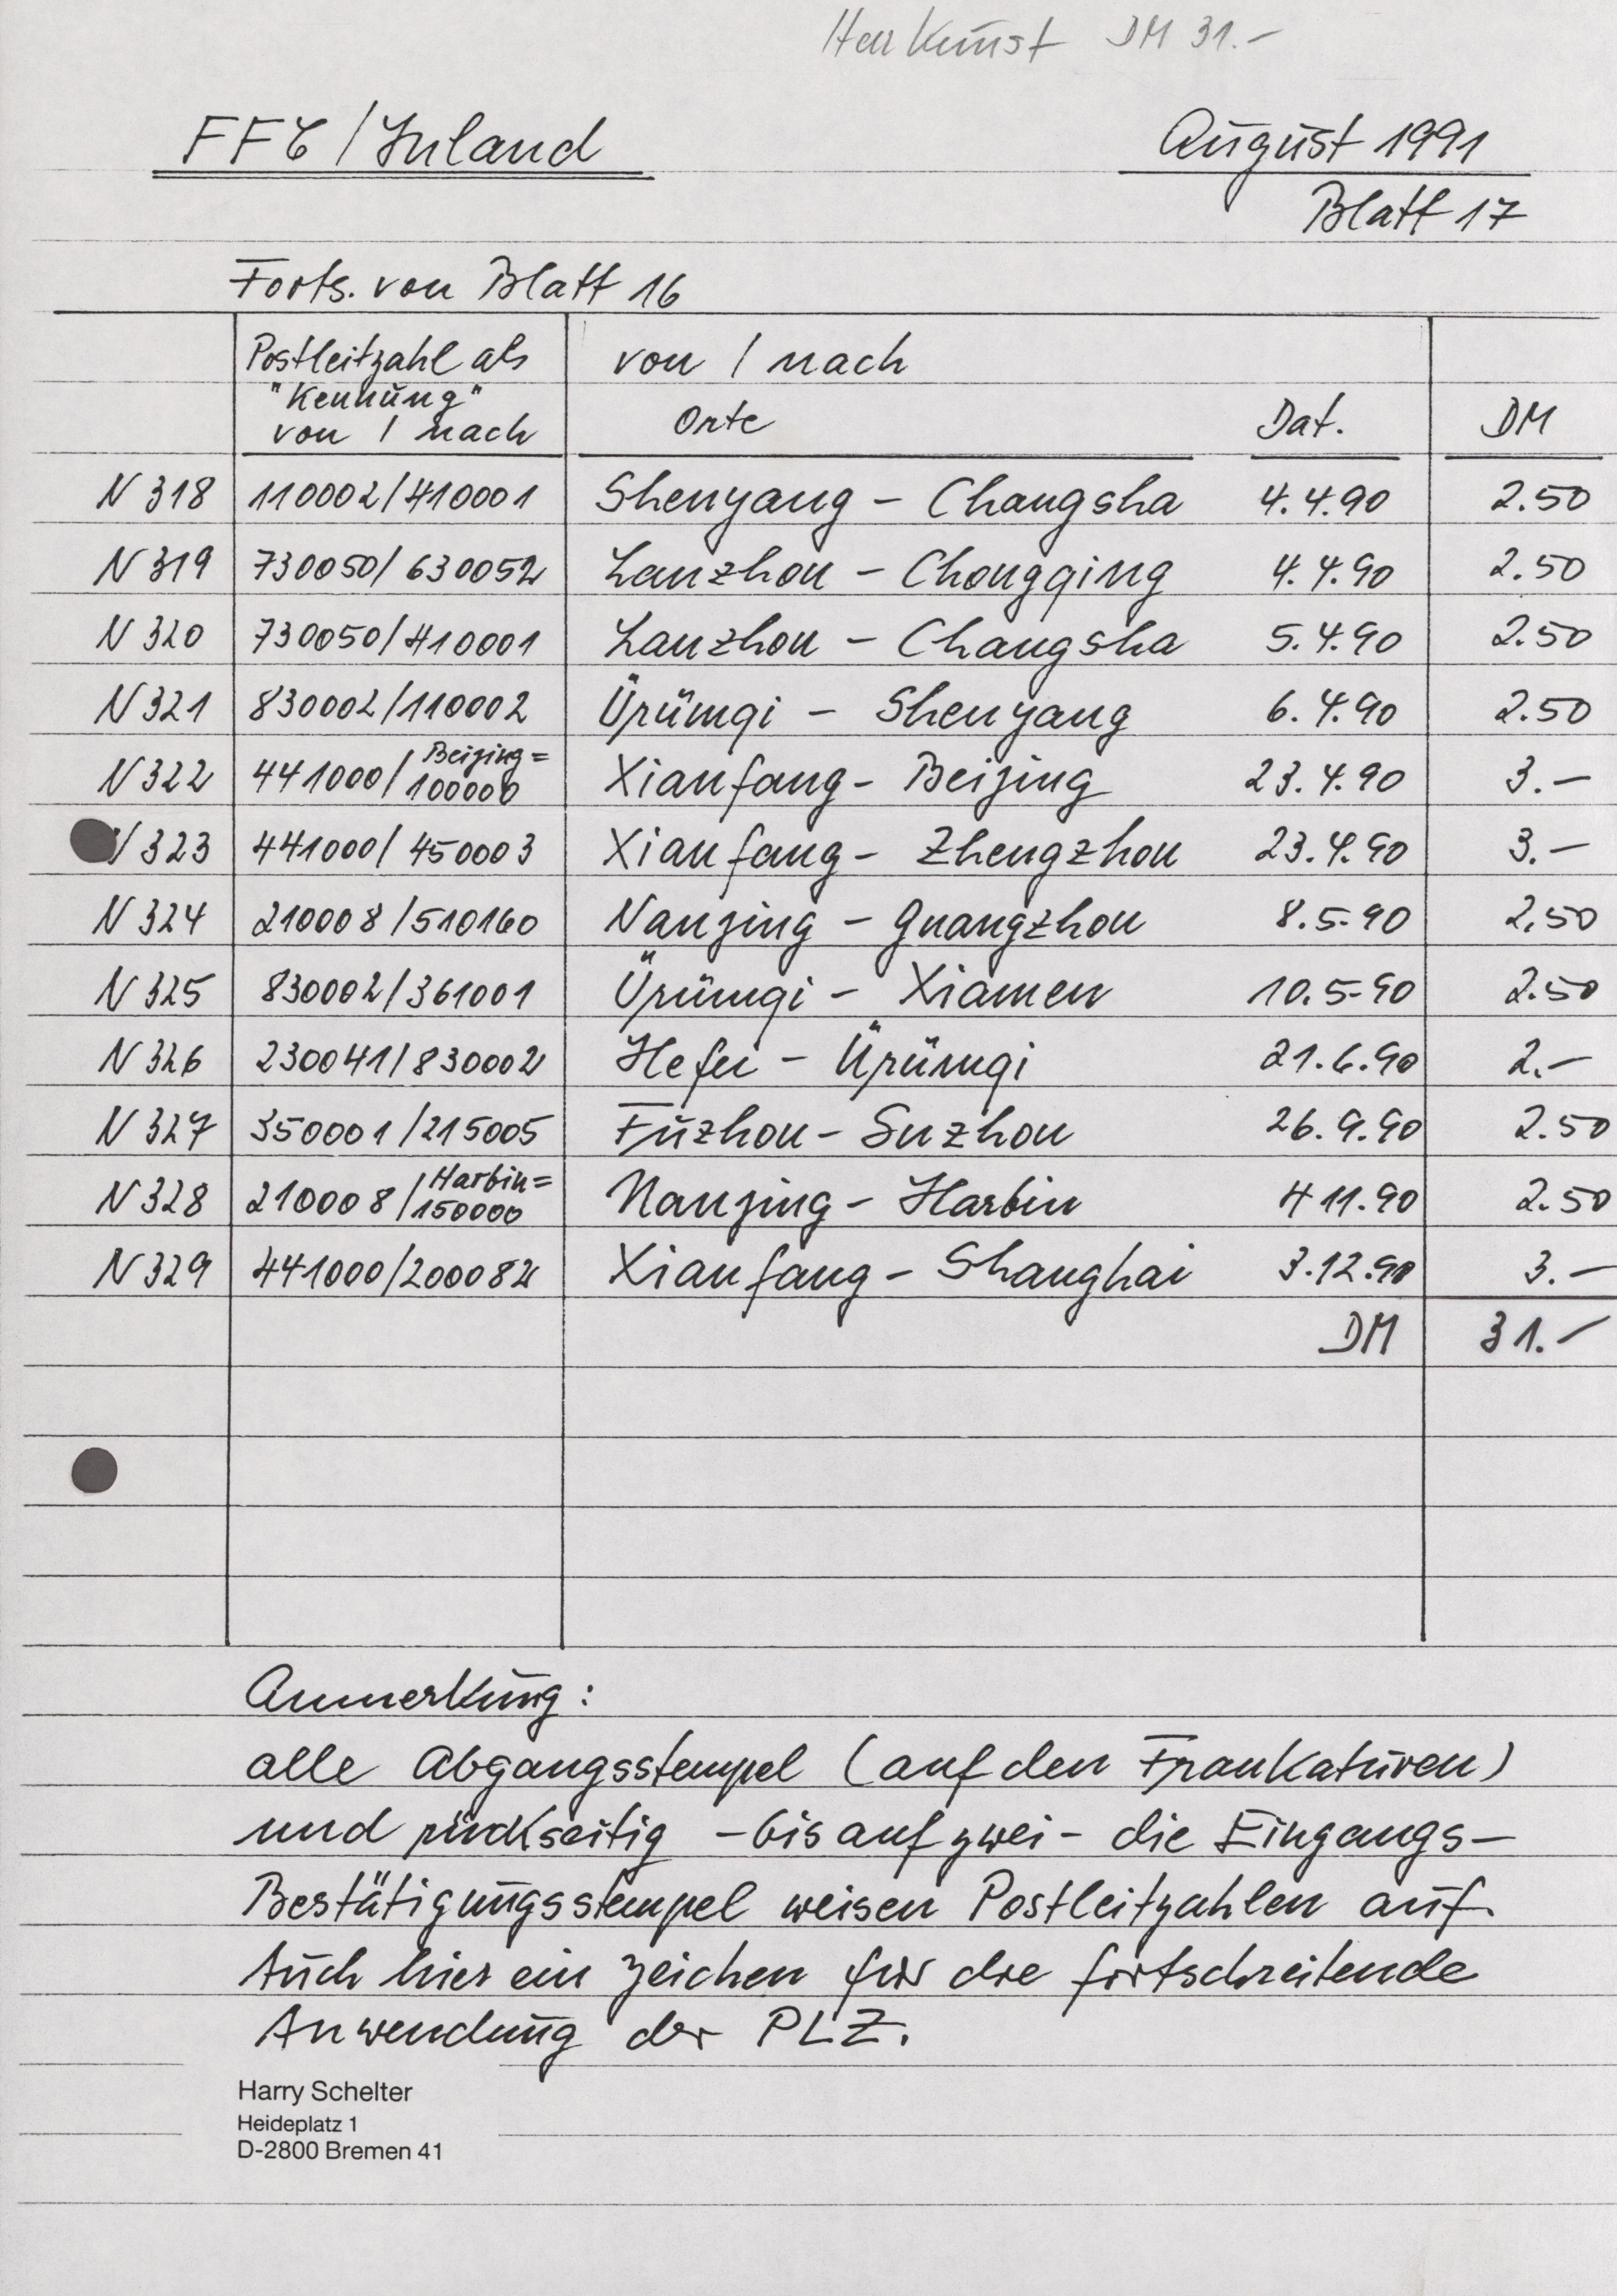 Herr Kunst DM 31.-
FFC / Inland
August 1991
Blatt 17
Forts. von Blatt 16
Postleitzahl als von / nach
"Kennung"
von / nach Orte Dat. DM
N 318 110002/410001 Shenyang - Changsha 4.4.90 2.50
N 319 730050/630052 Lanzhou - Chongqing 4.4.90 2.50
N 320 730050/410001 Lanzhou - Changsha 5.4.90 2.50
N 321 830002/110002 Ürümqi - Shenyang 6.4.90 2.50
N 322 441000/Beijing=100000 Xianfang - Beijing 23.4.90 3.-
N 323 441000/450003 Xianfang - Zhengzhou 23.4.90 3.-
N 324 210008/510160 Nanjing - Guangzhou 8.5.90 2.50
N 325 830002/361001 Ürümqi - Xiamen 10.5.90 2.50
N 326 230041/830002 Hefei - Ürümqi 21.6.90 2.-
N 327 350001/215005 Fuzhou - Suzhou 26.9.90 2.50
N 328 210008/Harbin=150000 Nanjing - Harbin 4 11.90 2.50
N 329 441000/200082 Xianfang - Shanghai 3.12.90 3.-
DM 31.-
Anmerkung:
alle Abgangsstempel (auf den Frankaturen)
und rückseitig - bis auf zwei - die Eingangs-
Bestätigungsstempel weisen Postleitzahlen auf.
Auch hier ein Zeichen für die fortschreitende
Anwendung der PLZ.
Harry Schelter
Heideplatz 1
D-2800 Bremen 41